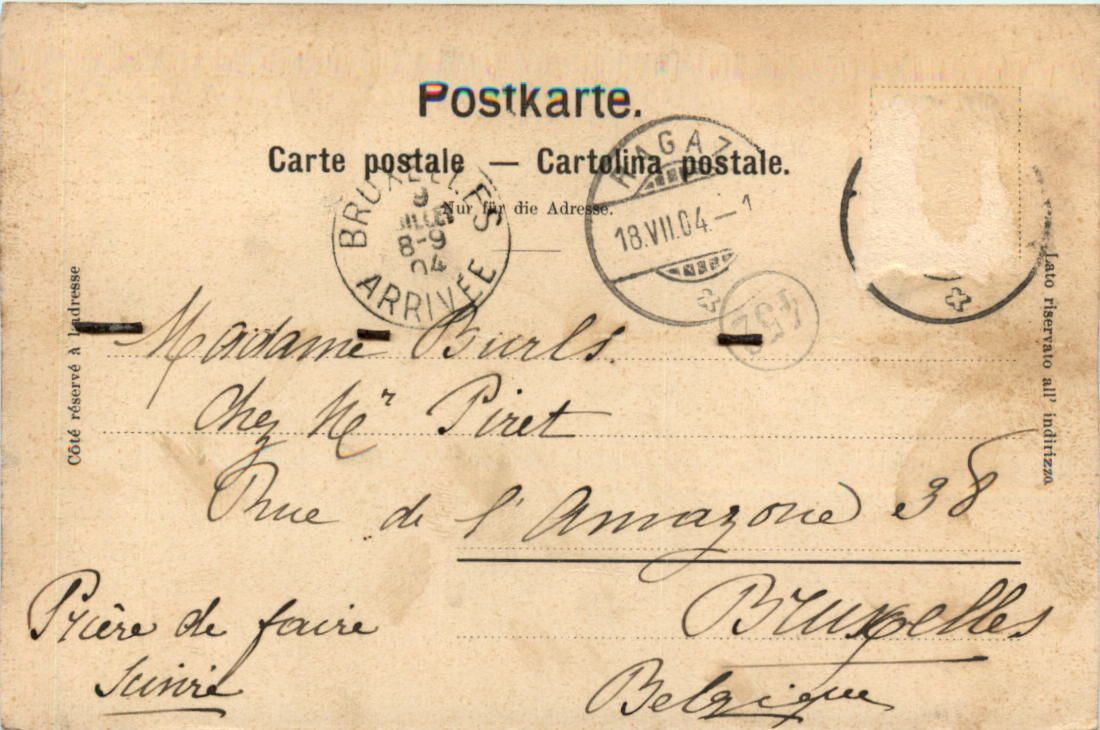 Postkarte.
Carte postale — Cartolina postale.
Nur für die Adresse.
BRUXELLES
9
JUILLET
8-9
04
ARRIVÉE
RAGAZ
18.VII.04.—1
452
Côté réservé à l'adresse
Lato riservato all' indirizzo
Madame Burls.
Chez Mr Piret
Rue de l'Amazone 38
Bruxelles
Belgique
Prière de faire
suivre